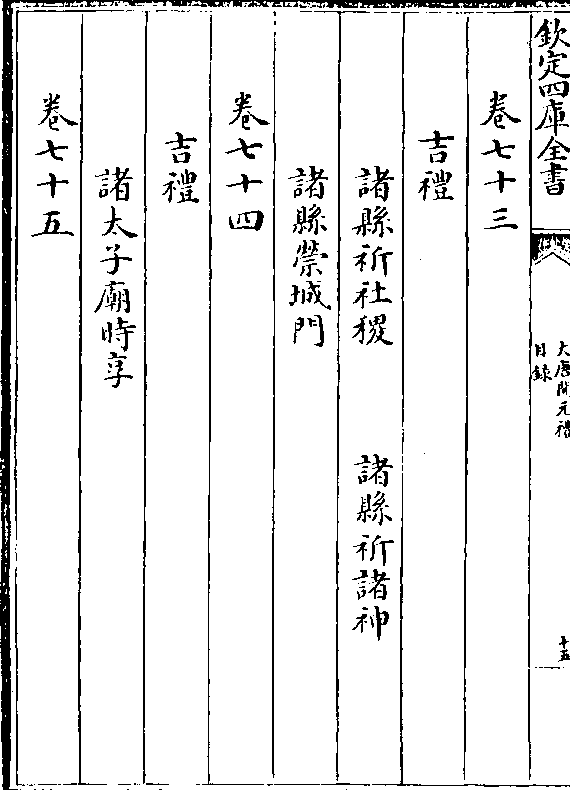 欽定四庫全書
大唐開元禮
目錄
十五
卷七十三
吉禮
諸縣祈社稷　諸縣祈諸神
諸縣禜城門
卷七十四
吉禮
諸太子廟時享
卷七十五